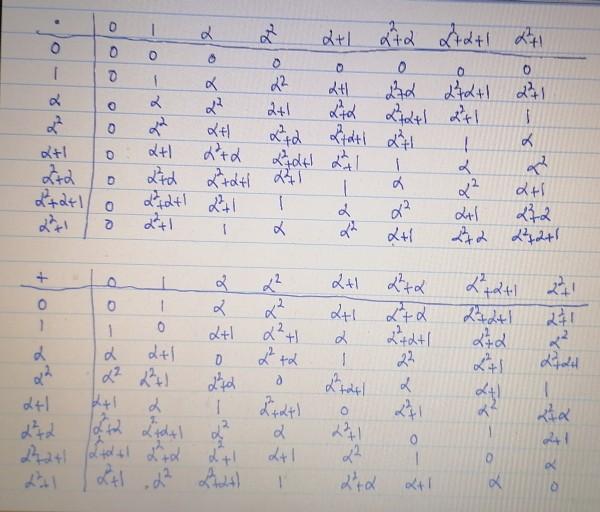 · 0 1 α α² α+1 α²+α α²+α+1 α²+1
0 0 0 0 0 0 0 0 0
1 0 1 α α² α+1 α²+α α²+α+1 α²+1
α 0 α α² α+1 α²+α α²+α+1 α²+1 1
α² 0 α² α+1 α²+α α²+α+1 α²+1 1 α
α+1 0 α+1 α²+α α²+α+1 α²+1 1 α α²
α²+α 0 α²+α α²+α+1 α²+1 1 α α² α+1
α²+α+1 0 α²+α+1 α²+1 1 α α² α+1 α²+α
α²+1 0 α²+1 1 α α² α+1 α²+α α²+α+1
+ 0 1 α α² α+1 α²+α α²+α+1 α²+1
0 0 1 α α² α+1 α²+α α²+α+1 α²+1
1 1 0 α+1 α²+1 α α²+α+1 α²+α α²
α α α+1 0 α²+α 1 α² α²+1 α²+α+1
α² α² α²+1 α²+α 0 α²+α+1 α α+1 1
α+1 α+1 α 1 α²+α+1 0 α²+1 α² α²+α
α²+α α²+α α²+α+1 α² α α²+1 0 1 α+1
α²+α+1 α²+α+1 α²+α α²+1 α+1 α² 1 0 α
α²+1 α²+1 α² α²+α+1 1 α²+α α+1 α 0